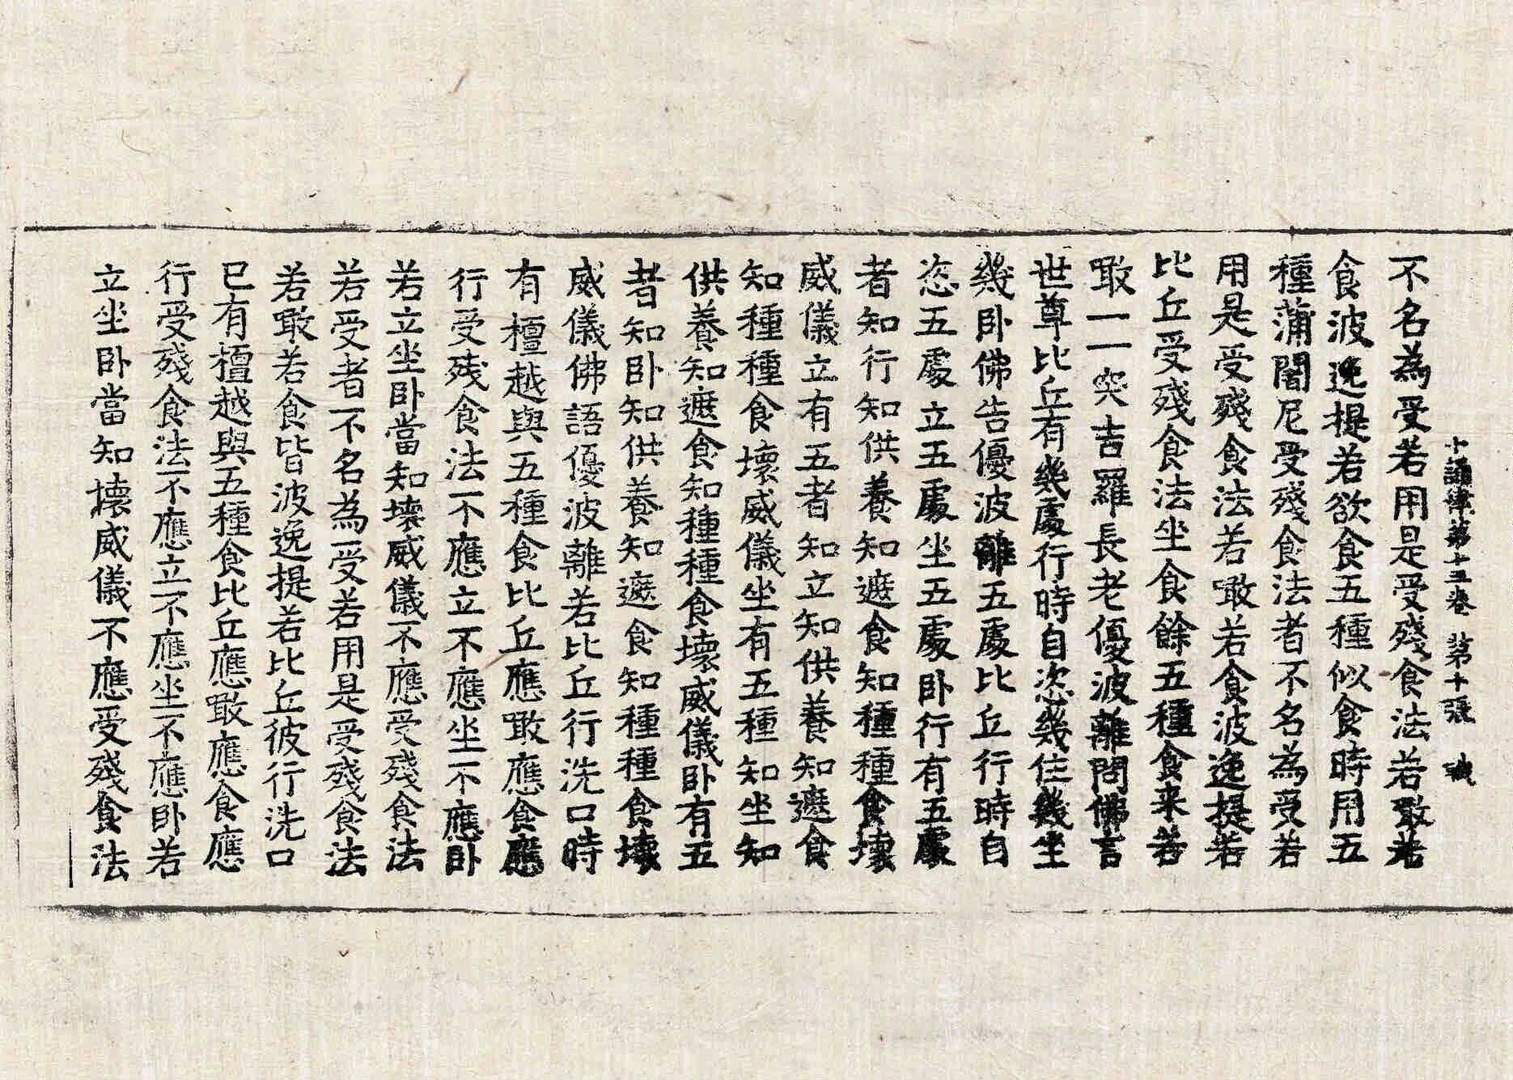 十誦律第十三卷 第十張 誠
不名為受若用是受殘食法若噉若
食波逸提若欲食五種似食時用五
種蒲闍尼受殘食法者不名為受若
用是受殘食法若噉若食波逸提若
比丘受殘食法坐食餘五種食来若
噉一一突吉羅長老優波離問佛言
世尊比丘有幾處行時自恣幾住幾坐
幾卧佛告優波離五處比丘行時自
恣五處立五處坐五處卧行有五處
者知行知供養知遮食知種種食壞
威儀立有五者知立知供養知遮食
知種種食壞威儀坐有五種知坐知
供養知遮食知種種食壞威儀卧有五
者知卧知供養知遮食知種種食壞
威儀佛語優波離若比丘行洗口時
有檀越與五種食比丘應噉應食應
行受残食法不應立不應坐不應卧
若立坐卧當知壞威儀不應受殘食法
若受者不名為受若用是受殘食法
若噉若食皆波逸提若比丘彼行洗口
已有檀越與五種食比丘應噉應食應
行受殘食法不應立不應坐不應卧若
立坐卧當知壞威儀不應受殘食法